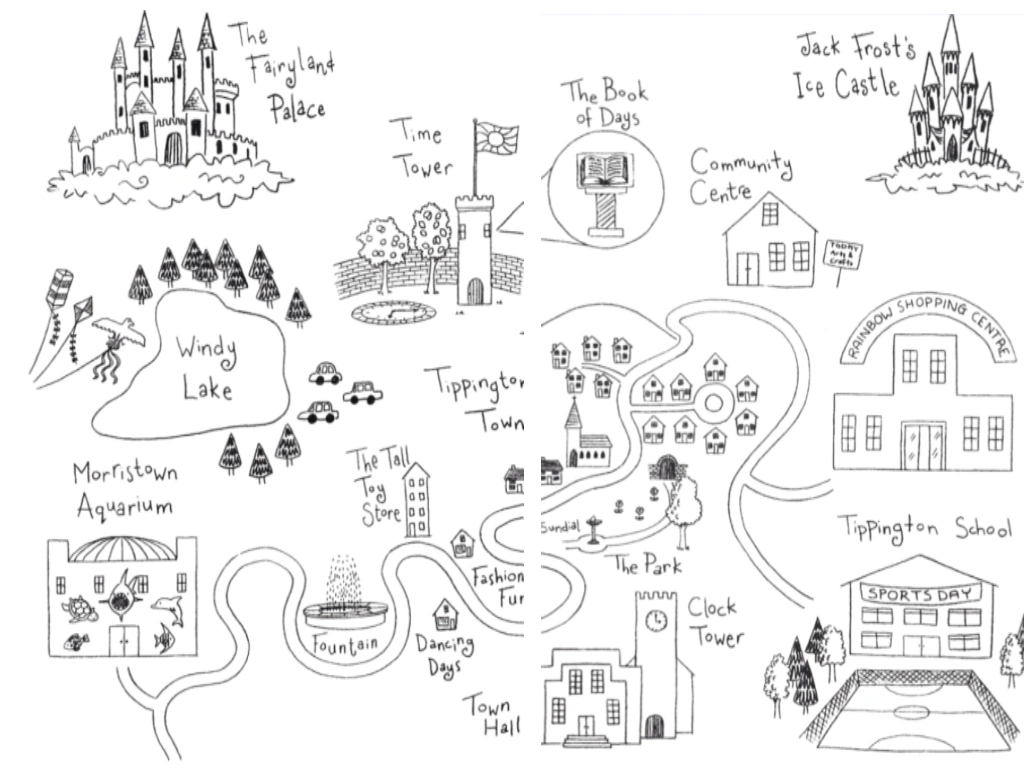 The
Fairyland
Palace
Time
Tower
Windy
Lake
Tippington
Town
Morristown
Aquarium
The Tall
Toy
Store
Fashion
Fun
Fountain
Dancing
Days
Town
Hall
Jack Frost's
Ice Castle
The Book
of Days
Community
Centre
TODAY
Arts &
Crafts
RAINBOW SHOPPING CENTRE
Sundial
The Park
Tippington School
SPORTS DAY
Clock
Tower